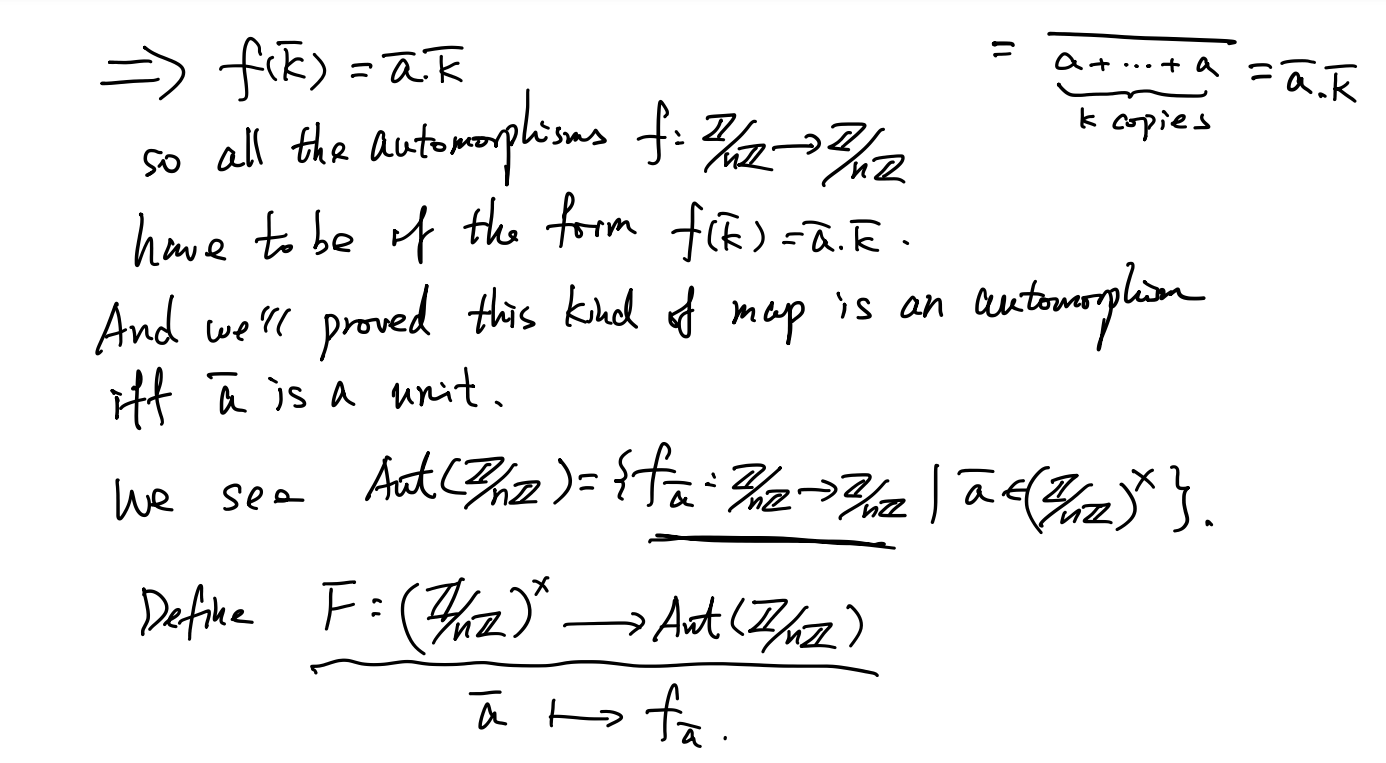 ⟹ f(k̄) = ā.k̄
= \overline{a + ... + a} = ā.k̄
k copies
so all the automorphisms f: ℤ/nℤ → ℤ/nℤ
have to be of the form f(k̄) = ā.k̄ .
And we'll proved this kind of map is an automorphism
iff ā is a unit.
We see Aut(ℤ/nℤ) = {f_ā : ℤ/nℤ → ℤ/nℤ | ā ∈ (ℤ/nℤ)^× }.
Define F : (ℤ/nℤ)^× ⟶ Aut(ℤ/nℤ)
ā ⟼ f_ā .